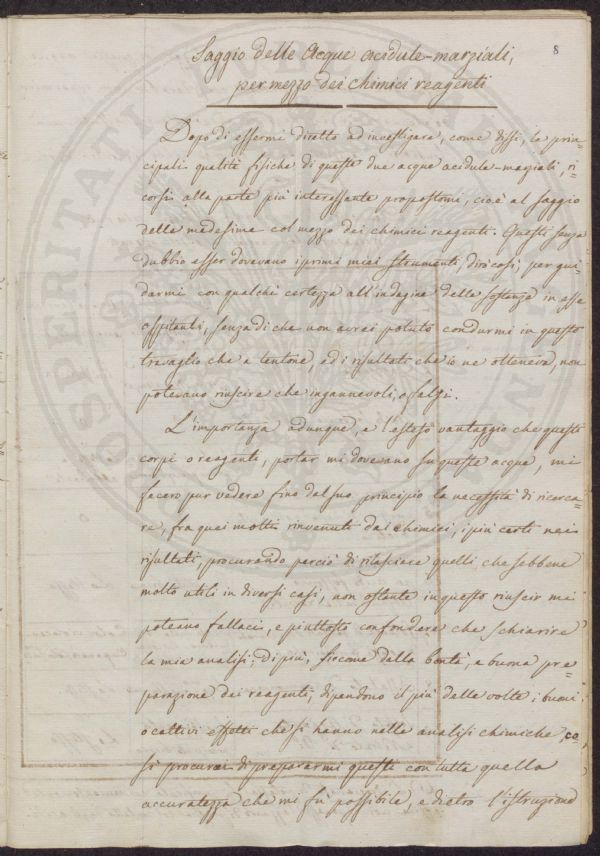 8
Saggio delle Acque acidule-marziali,
per mezzo dei chimici reagenti
Dopo di essermi diretto ad investigare, come dissi, le prin=
cipali qualità fisiche di queste due acque acidule-marziali, ri=
corsi alla parte più interessante propostomi, cioè al saggio
delle medesime col mezzo dei chimici reagenti. Questi senza
dubbio esser dovevano i primi miei strumenti, dirò così, per gui=
darmi con qualche certezza all'indagine delle sostanze in esse
ospitanti, senza di che non avrei potuto condurmi in questo
travaglio che a tentone, ed i risultati che io ne otteneva, non
potevano riuscire che ingannevoli, o falsi.
L'importanza adunque, e l'esteso vantaggio che questi
corpi o reagenti, portar mi dovevano su queste acque, mi
fecero pur vedere fino dal suo principio la necessità di ricerca=
re, fra quei molti rinvenuti dai chimici, i più certi nei
risultati, procurando perciò di rilasciare quelli che sebbene
molto utili in diversi casi, non ostante in questo riuscir mi
poteano fallaci, e piuttosto confondere che schiarire
la mia analisi; di più, siccome dalla bontà, e buona pre=
parazione dei reagenti, dipendono il più delle volte i buoni
o cattivi effetti che si hanno nelle analisi chimiche, co
sì procurai di prepararmi questi con tutta quella
accuratezza che mi fu possibile, e dietro l'istruzione